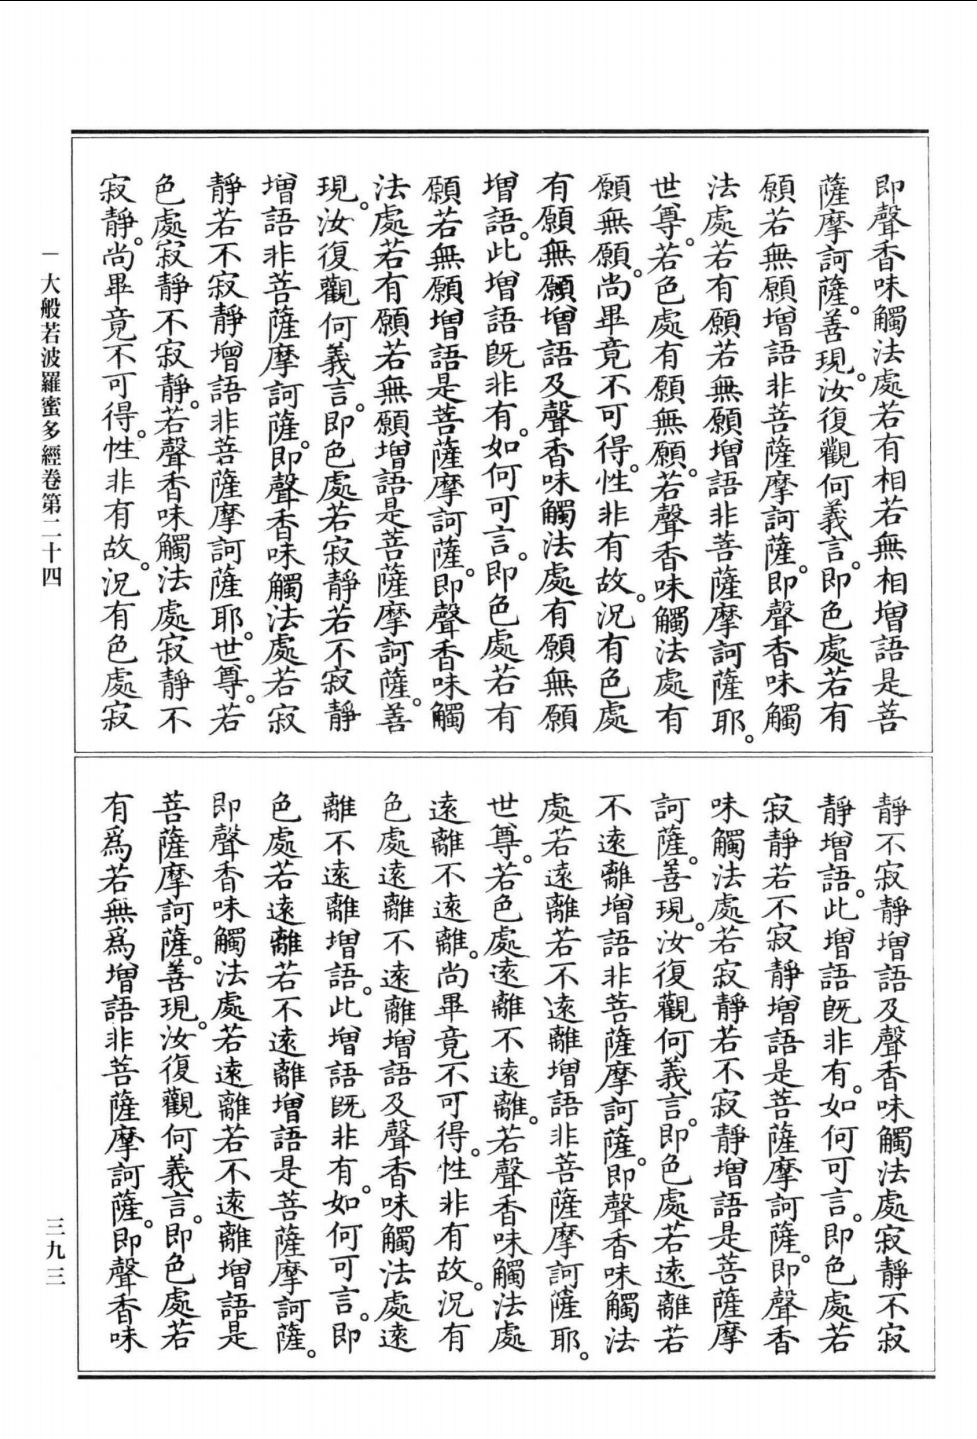 即聲香味觸法處若有相若無相增語是菩
薩摩訶薩。善現。汝復觀何義言。即色處若有
願若無願增語非菩薩摩訶薩。即聲香味觸
法處若有願若無願增語非菩薩摩訶薩耶。
世尊。若色處有願無願。若聲香味觸法處有
願無願。尚畢竟不可得。性非有故。況有色處
有願無願增語及聲香味觸法處有願無願
增語。此增語既非有。如何可言。即色處若有
願若無願增語是菩薩摩訶薩。即聲香味觸
法處若有願若無願增語是菩薩摩訶薩。善
現。汝復觀何義言。即色處若寂靜若不寂靜
增語非菩薩摩訶薩。即聲香味觸法處若寂
靜若不寂靜增語非菩薩摩訶薩耶。世尊。若
色處寂靜不寂靜。若聲香味觸法處寂靜不
寂靜。尚畢竟不可得。性非有故。況有色處寂
靜不寂靜增語及聲香味觸法處寂靜不寂
靜增語。此增語既非有。如何可言。即色處若
寂靜若不寂靜增語是菩薩摩訶薩。即聲香
味觸法處若寂靜若不寂靜增語是菩薩摩
訶薩。善現。汝復觀何義言。即色處若遠離若
不遠離增語非菩薩摩訶薩。即聲香味觸法
處若遠離若不遠離增語非菩薩摩訶薩耶。
世尊。若色處遠離不遠離。若聲香味觸法處
遠離不遠離。尚畢竟不可得。性非有故。況有
色處遠離不遠離增語及聲香味觸法處遠
離不遠離增語。此增語既非有。如何可言。即
色處若遠離若不遠離增語是菩薩摩訶薩。
即聲香味觸法處若遠離若不遠離增語是
菩薩摩訶薩。善現。汝復觀何義言。即色處若
有爲若無爲增語非菩薩摩訶薩。即聲香味
一 大般若波羅蜜多經卷第二十四
三九三